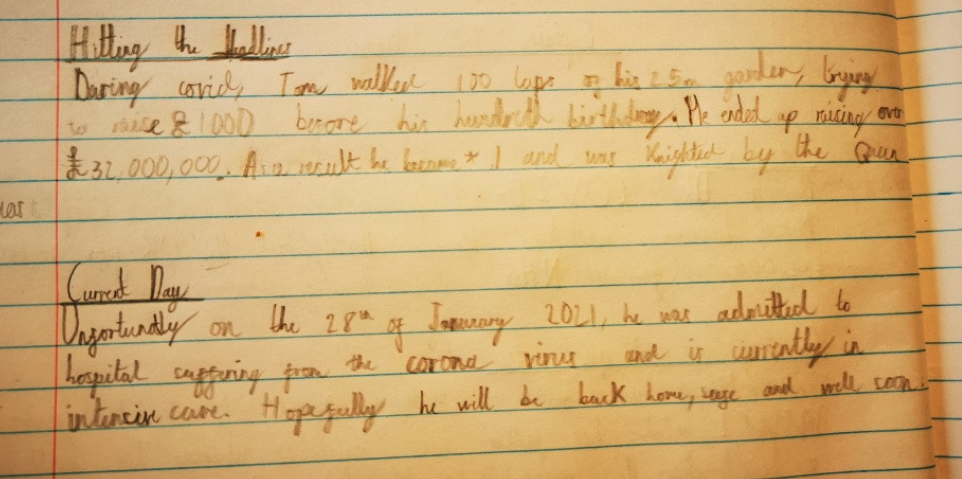 Hitting the Headlines
During covid, Tom walked 100 laps of his 25m garden, trying
to raise £1000 before his hundreth birthday. He ended up raising over
£32,000,000. As a result he became * 1 and was Knighted by the Queen
Current Day
Unfortundtly on the 28th of January 2021, he was admitted to
hospital suffering from the corona virus and is currently in
intensive care. Hopefully he will be back home, safe and well soon.